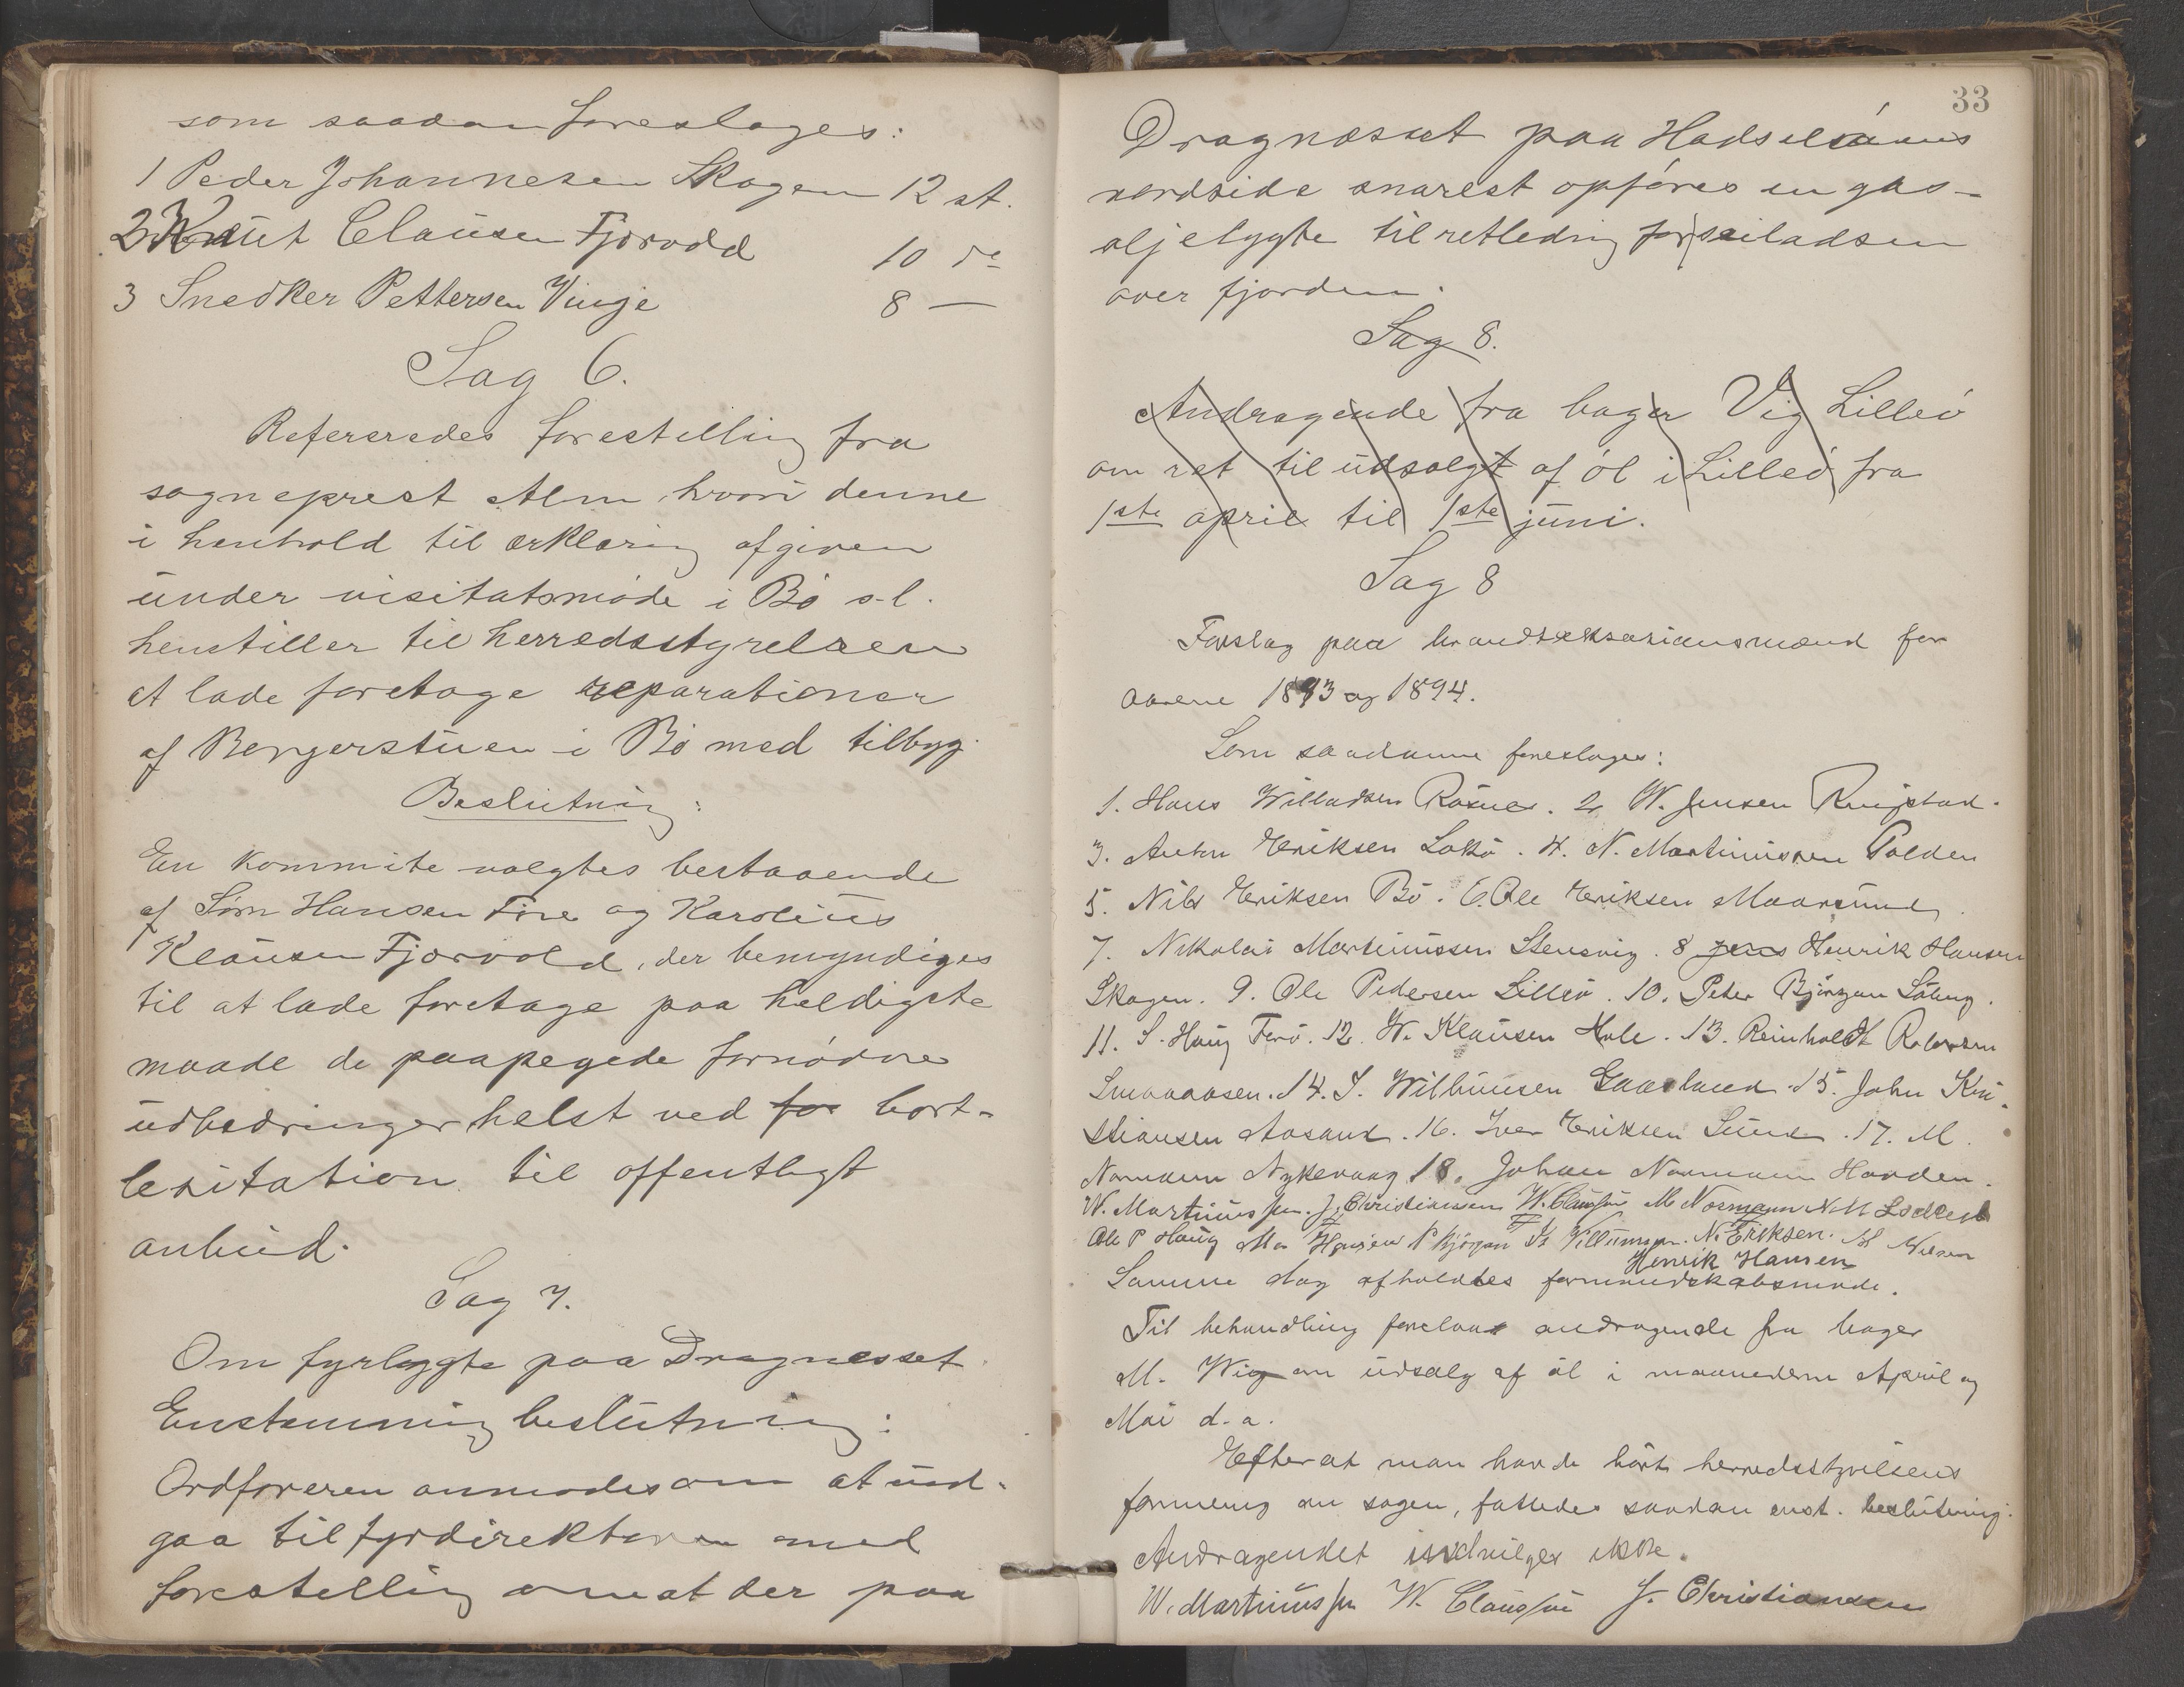 som saadan foreslages:
1 Peder Johannesen Skagen 12 st.
2 Knut Clausen Fjorvold 10 do
3 Snedker Pettersen Vinje 8 —
Sag 6.
Refereredes forestilling fra
sogneprest Alm hvori denne
i henhold til erklæring afgiven
under visitatsmøde i Bø s.l.
henstiller til herredsstyrelsen
at lade foretage reparationer
af Borgerstuen i Bø med tilbyg.
Beslutning:
En kommite valgtes bestaaende
af Sørn Hansen Føre og Karolius
Klausen Fjærvold, der bemyndiges
til at lade foretage paa heldigste
maade de paapegede fornødne
udbedringer helst ved for bort-
lesitation til offentligt
anbud.
Sag 7.
Om fyrlygte paa Dragnesset
Enstemmig beslutning:
Ordføreren anmodes om at ind-
gaa til fyrdirektøren med
forestilling om at der paa
33
Dragnæsset paa Hadseløens
nordside snarest opføres en gas-
oljelygte til retledning for seiladsen
over fjorden.
Sag 8.
Andragende fra bager Vig Lilleø
om ret til udsalgt af øl i Lilleø fra
1ste april til 1ste juni.
Sag 8
Forslag paa brandtaksasionsmænd for
aarene 1893 og 1894.
Som saadanne foreslages:
1. Hans Willadsen Røsnes. 2 W. Jensen Ringstad.
3. Anton Eriksen Lokø. 4. N. Martinussen Polden
5. Nils Eriksen Bø. 6. Ole Eriksen Maarsund
7. Nikolai Martinussen Steusvig. 8 Jens Henrik Hansen
Skagen. 9. Ole Pedersen Lilleø. 10. Peter Björgan
11. S. Haug Førø. 12. W. Klausen Hole. 13. Reinholdt
14. J. Willumsen Gaasland. 15. John Kri-
stiansen Aasand. 16. Iver Eriksen Sund. 17. M.
Normann Nykvaag 18. Johan Normann Hovden.
W. Martinussen. J. Christiansen W. Claussen M Normann N M
Ole P Haug M. Hansen P Björgan Willumsen. N. Eriksen. Nilsen
Henrik Hansen
Samme dag afholdtes formandskabsmøde.
Til behandling forelaa andragende fra bager
M. Wig om udsalg af øl i maanederne April og
Mai d.a.
Efterat man havde hørt herredsstyrelsens
formening om sagen, fattedes saadan enst. beslutning:
Andragendet indvilges ikke.
W. Martinussen W. Claussen J. Christiansen